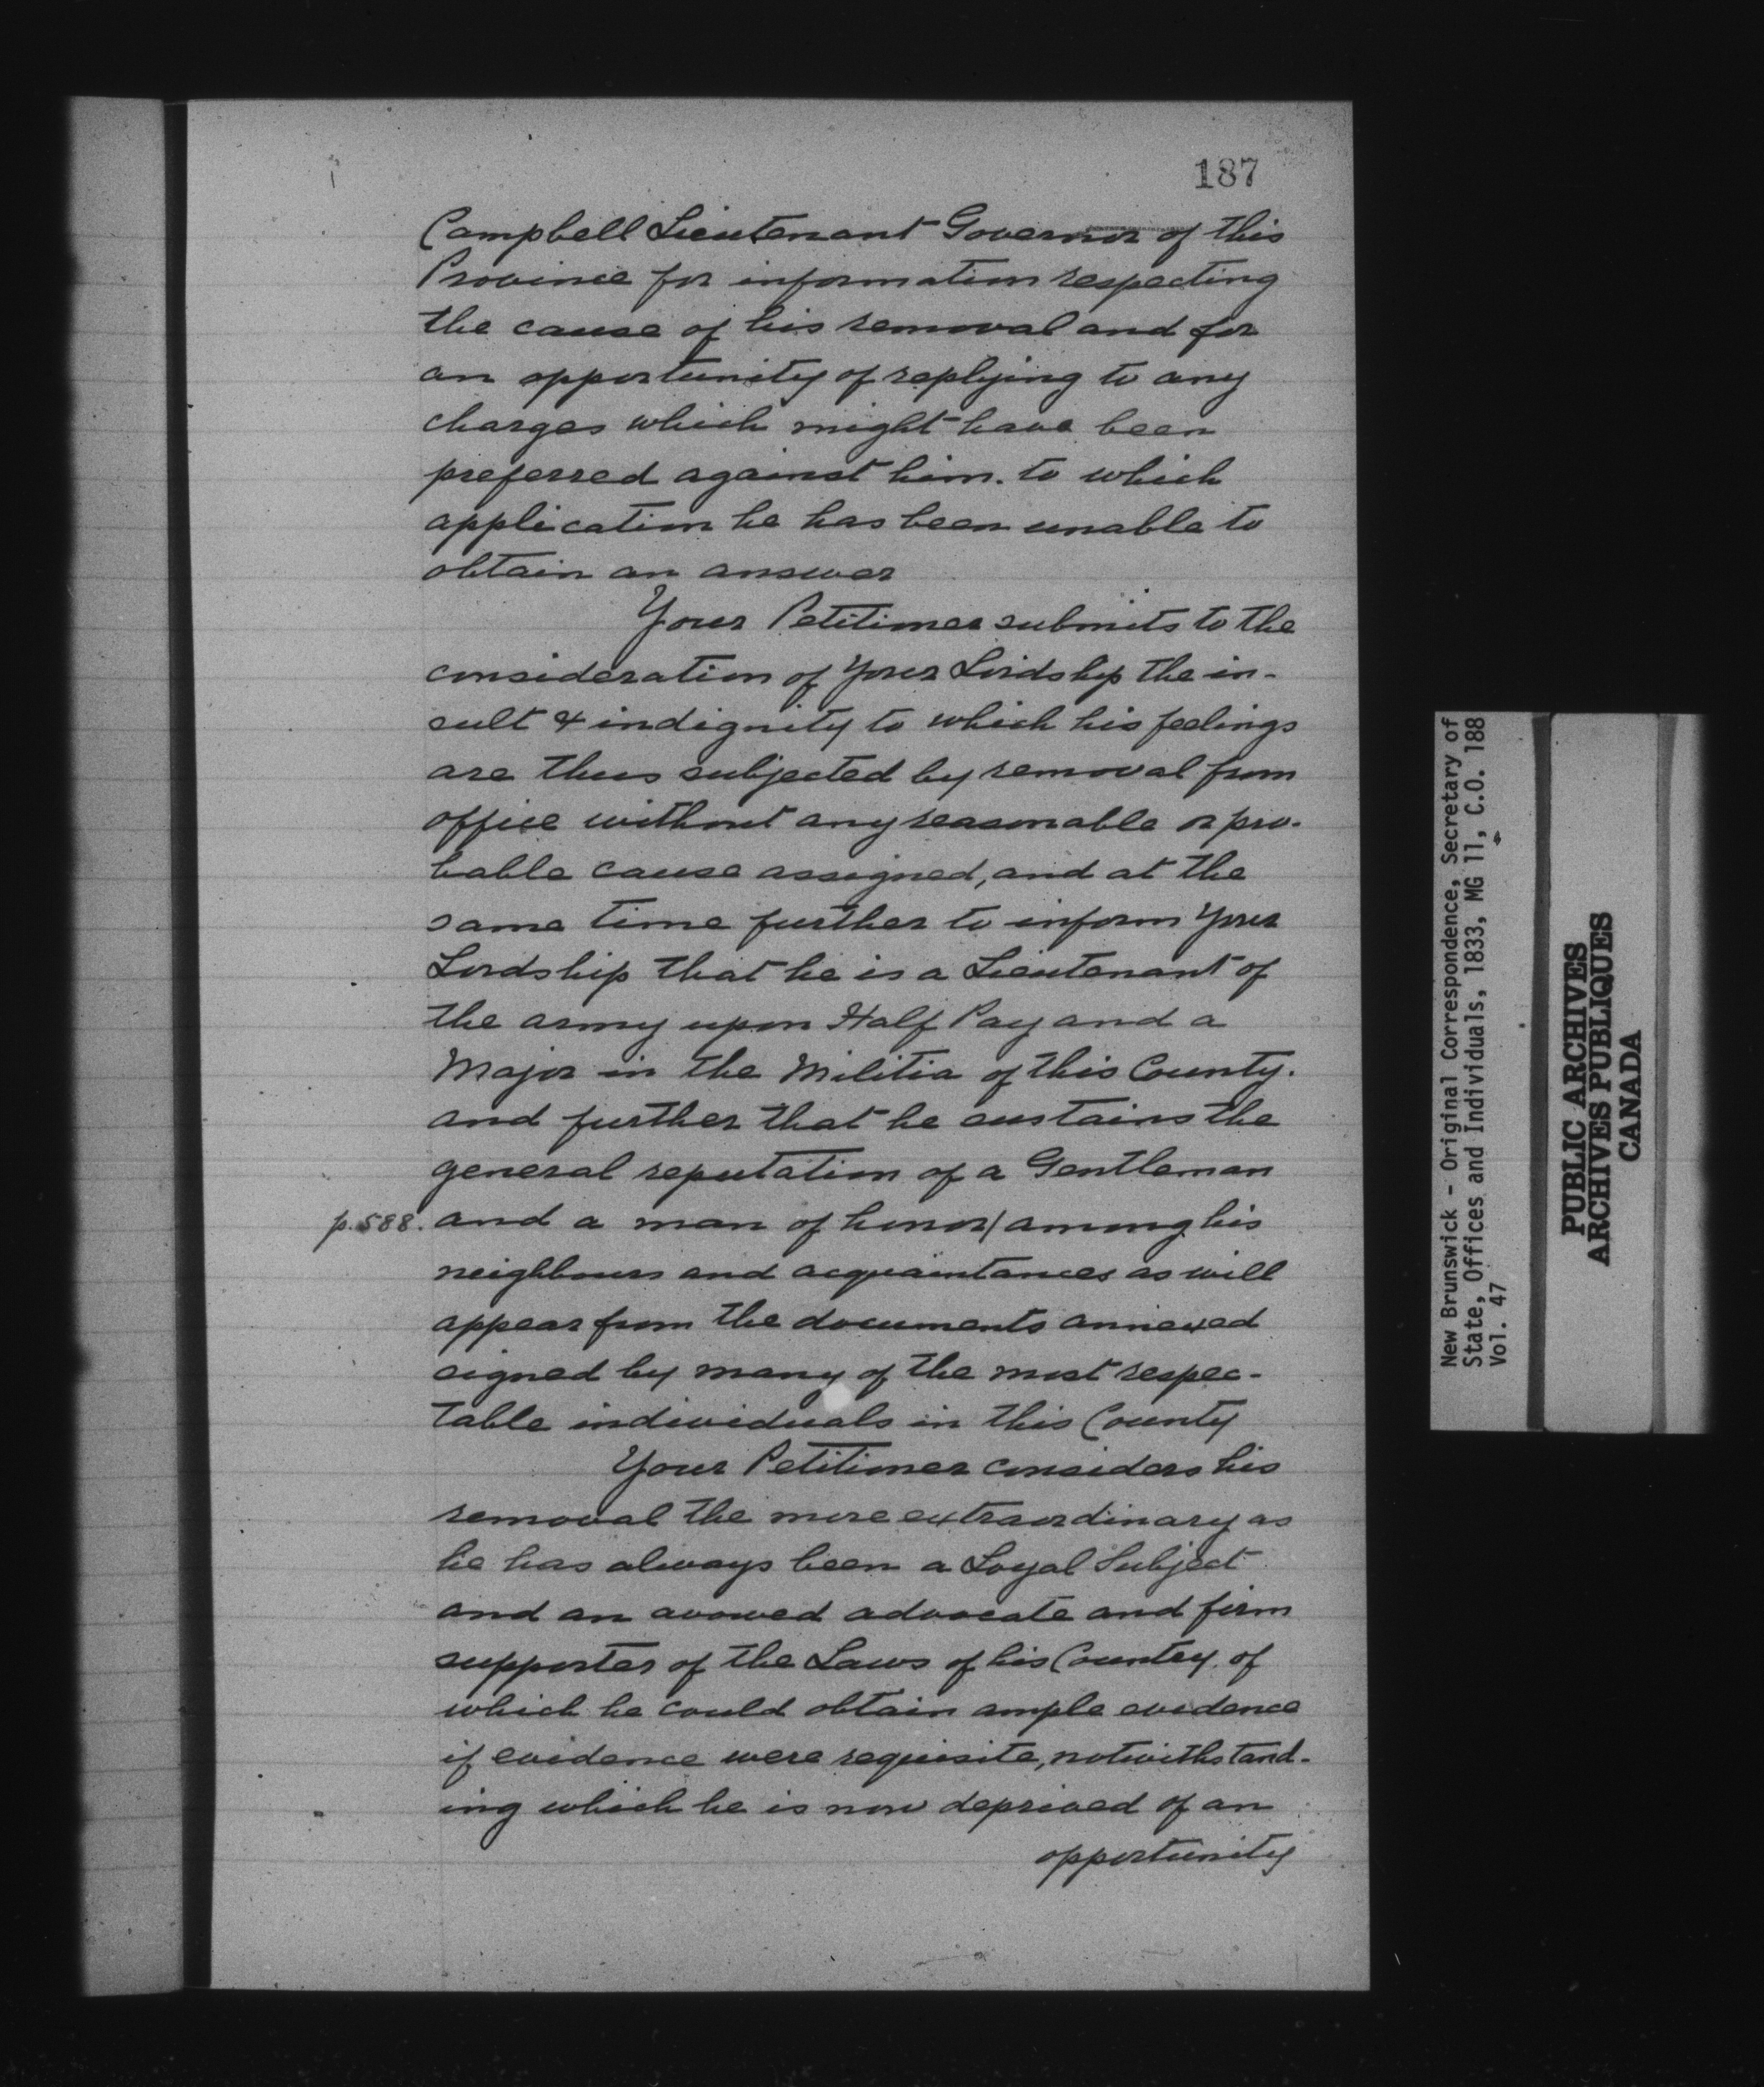 187
Campbell Lieutenant Governor of this
Province for information respecting
the cause of his removal and for
an opportunity of replying to any
charges which might have been
preferred against him. to which
application he has been unable to
obtain an answer
Your Petitioner submits to the
consideration of Your Lordship the in-
sult & indignity to which his feelings
are thus subjected by removal from
office without any reasonable or pro-
bable cause assigned, and at the
same time further to inform Your
Lordship that he is a Lieutenant of
the army upon Half Pay and a
Major in the Militia of this County.
and further that he sustains the
general reputation of a Gentleman
p. 588. and a man of honor/ among his
neighbours and acquaintances as will
appear from the documents annexed
signed by many of the most respec-
table individuals in this County
Your Petitioner considers his
removal the more extraordinary as
he has always been a Loyal Subject
and an avowed advocate and firm
supporter of the Laws of his Country, of
which he could obtain ample evidence
if evidence were requisite, notwithstand-
ing which he is now deprived of an
opportunity
New Brunswick - Original Correspondence, Secretary of
State, Offices and Individuals, 1833, MG 11, C.O. 188
Vol. 47
PUBLIC ARCHIVES
ARCHIVES PUBLIQUES
CANADA